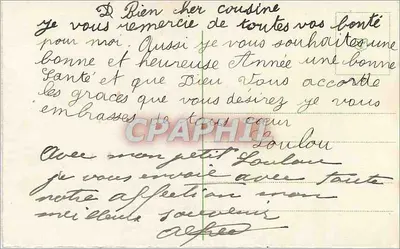 D Bien cher cousine
je vous remercie de toutes vos bonté
pour moi. Aussi je vous souhaites une
bonne et heureuse Année une bonne
Santé et que Dieu Vous accorde
les graces que vous désirez je vous
embrasses de tous cœur
Loulou
Avec mon petit Loulou
je vous envoie avec toute
notre affection mon
meilleure souvenir
Alfred
CPAPHIL